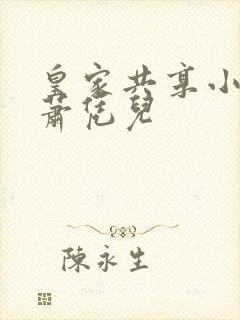 皇家共享小
蕭恁兒
陳永生